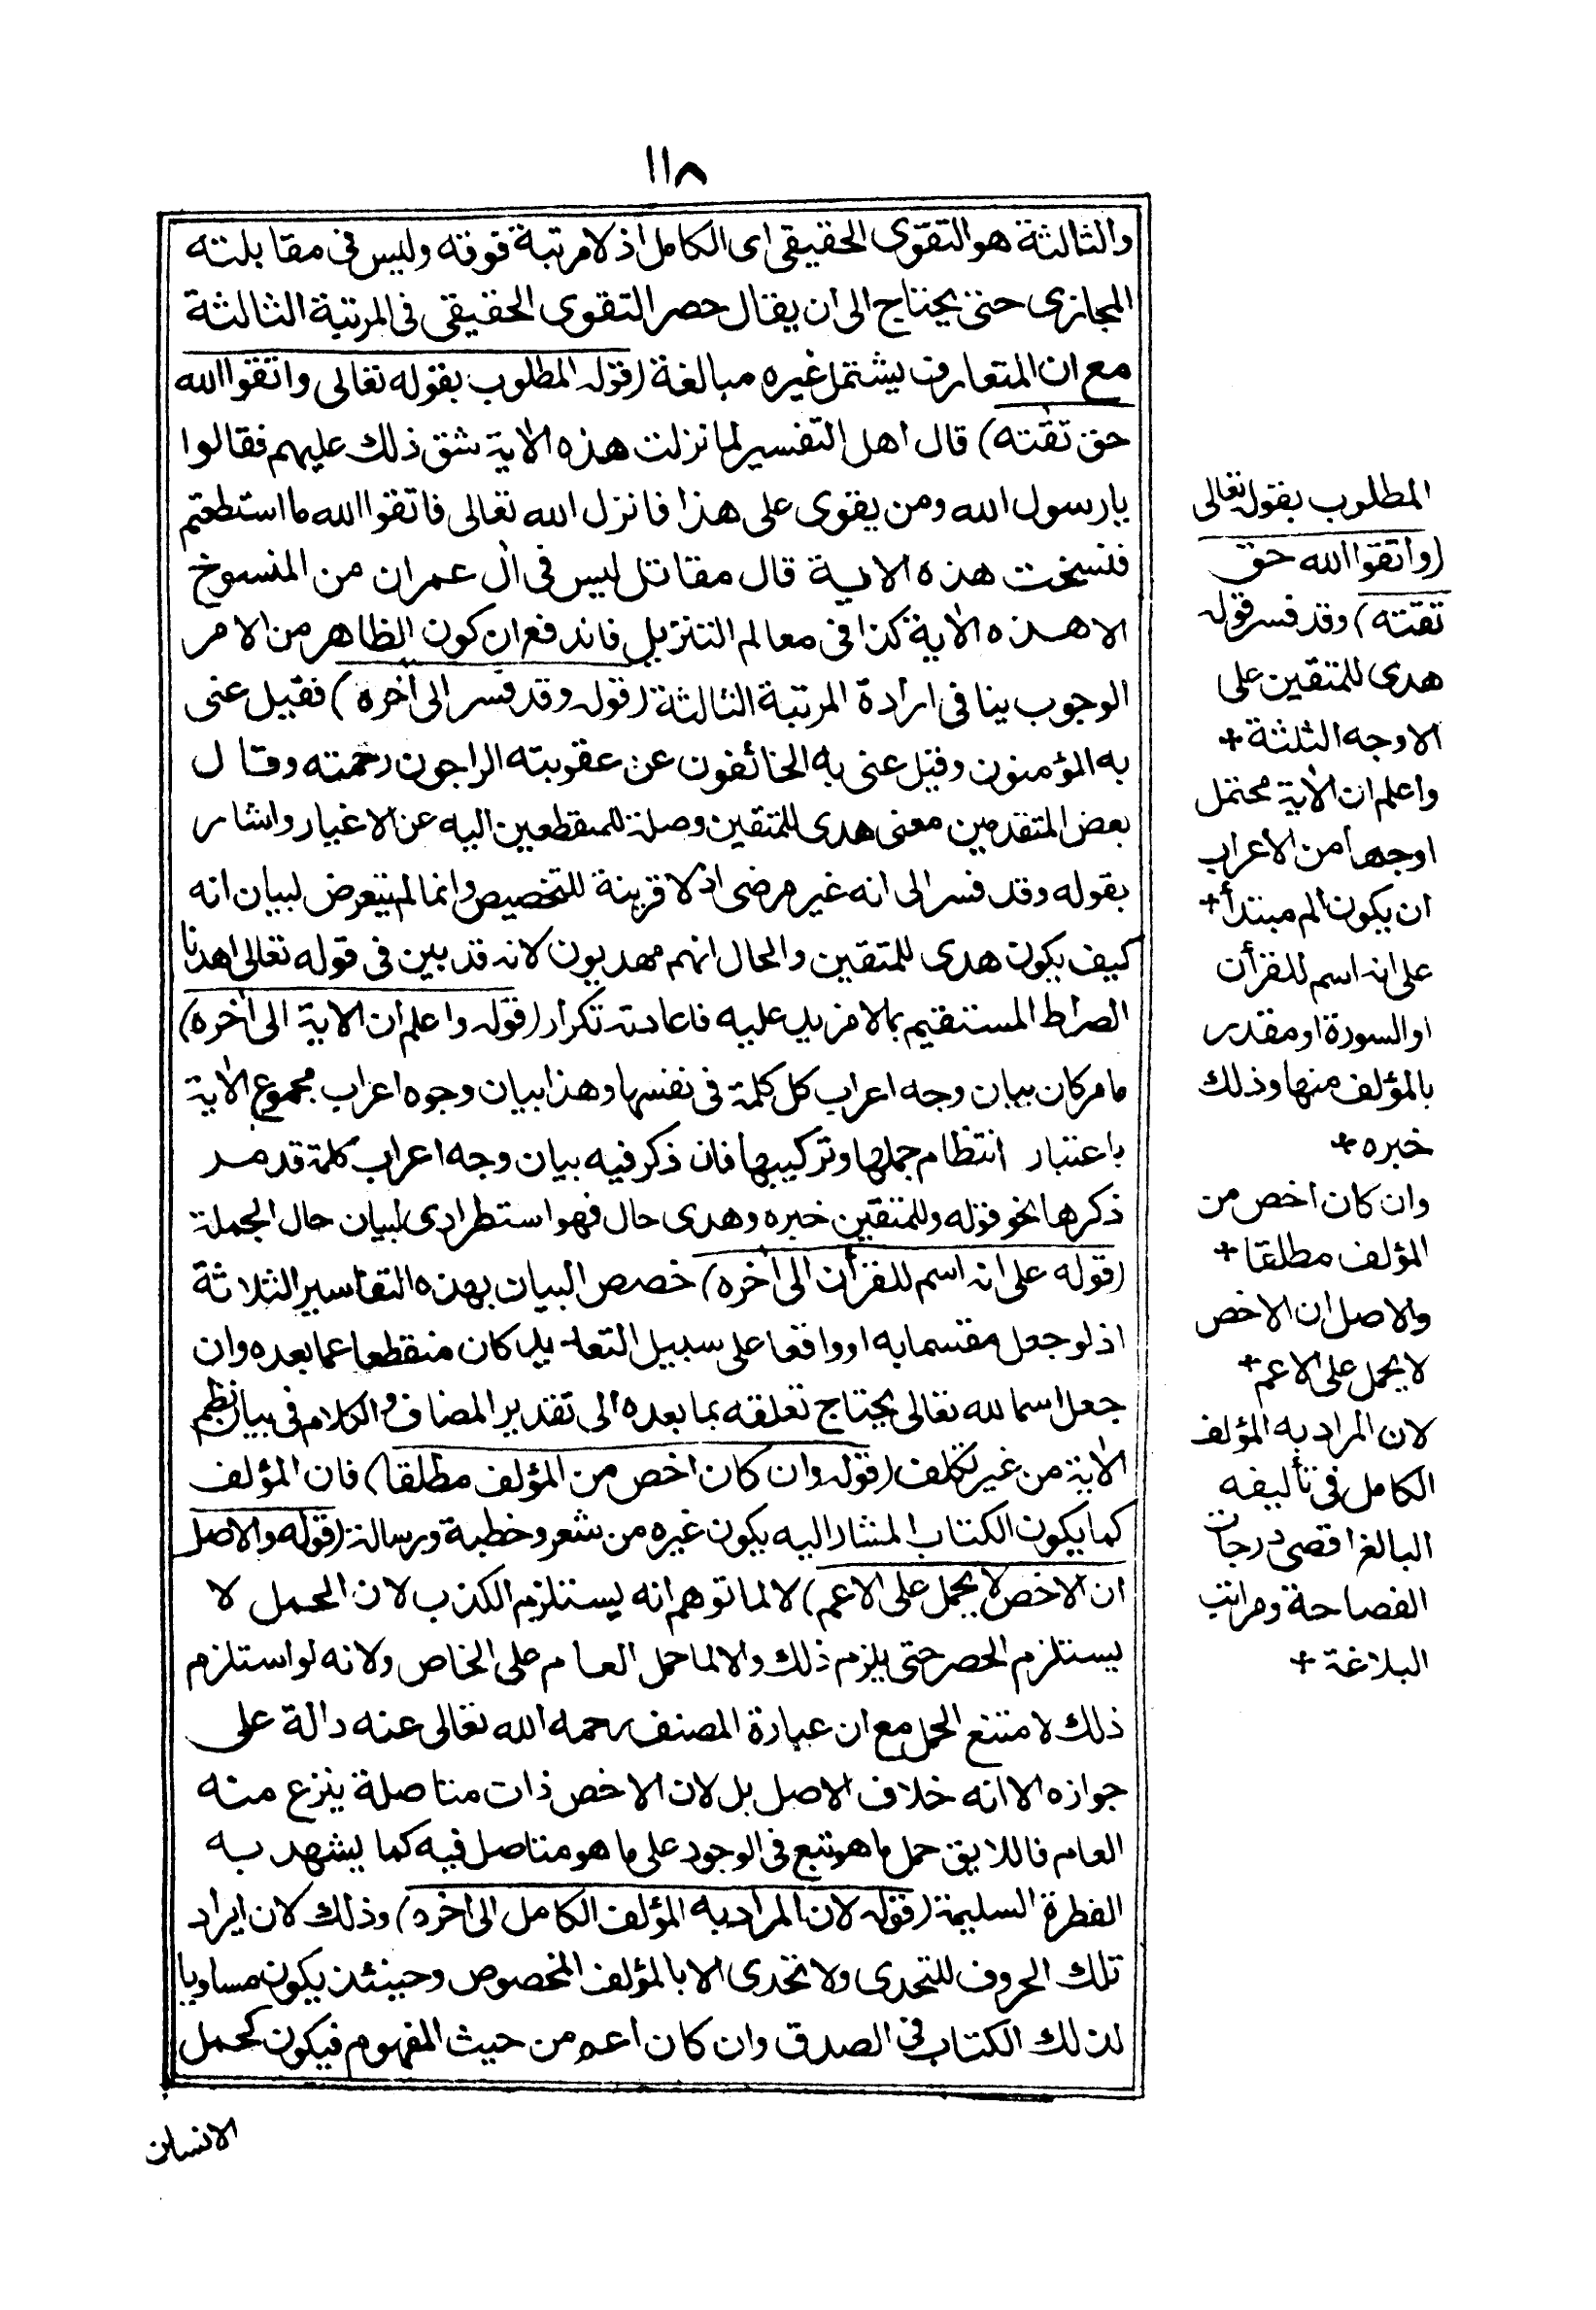 ١١٨
والثالثة هو التقوى الحقيقى اى الكامل اذ لا مرتبة فوقه وليس فى مقابلته
المجازى حتى يحتاج الى ان يقال حصر التقوى الحقيقى فى المرتبة الثالثة
مع ان المتعارف يشتمل غيره مبالغة (قوله المطلوب بقوله تعالى واتقوا الله
حق تقته) قال اهل التفسير لما نزلت هذه الاٰية شق ذلك عليهم فقالوا
يا رسول الله ومن يقوى على هذا فانزل الله تعالى فاتقوا الله ما استطعتم
فنسخت هذه الاية قال مقاتل ليس فى اٰل عمران من المنسوخ
الا هذه الاٰية كذا فى معالم التنزيل فاندفع ان كون الظاهر من الامر
الوجوب ينافى ارادة المرتبة الثالثة (قوله وقد فسر الى اٰخره) فقيل عنى
به المؤمنون وقيل عنى به الخائفون عن عقوبته الراجون رحمته وقال
بعض المتقدمين معنى هدى للمتقين وصلة للمنقطعين اليه عن الاغيار واشار
بقوله وقد فسر الى انه غير مرضى اذ لا قرينة للتخصيص وانما لم يتعرض لبيان انه
كيف يكون هدى للمتقين والحال انهم مهديون لانه قد بين فى قوله تعالى اهدنا
الصراط المستقيم بما لا مزيد عليه فاعادته تكرار (قوله واعلم ان الاٰية الى اٰخره)
ما مر كان بيان وجه اعراب كل كلمة فى نفسها وهذا بيان وجوه اعراب مجموع الاٰية
باعتبار انتظام جملها وتركيبها فان ذكر فيه بيان وجه اعراب كلمة قد مر
ذكرها نحو قوله وللمتقين خبره وهدى حال فهو استطرادى لبيان حال الجملة
(قوله على انه اسم للقراٰن الى اٰخره) خصص البيان بهذه التفاسير الثلاثة
اذ لو جعل مقسما به او واقعا على سبيل التعديد كان منقطعا عما بعده وان
جعل اسما لله تعالى يحتاج تعلقه بما بعده الى تقدير المضاف والكلام فى بيان نظم
الاٰية من غير تكلف (قوله وان كان اخص من المؤلف مطلقا) فان المؤلف
كما يكون الكتاب المشار اليه يكون غيره من شعر وخطبة ورسالة (قوله والاصل
ان الاخص لا يحمل على الاعم) لا لما توهم انه يستلزم الكذب لان الحمل لا
يستلزم الحصر حتى يلزم ذلك والا لما حمل العام على الخاص ولانه لو استلزم
ذلك لامتنع الحمل مع ان عبارة المصنف رحمه الله تعالى عنه دالة على
جوازه الا انه خلاف الاصل بل لان الاخص ذات متاصلة ينزع منه
العام فاللايق حمل ما هو تبع فى الوجود على ما هو متاصل فيه كما يشهد به
الفطرة السليمة (قوله لان المراد به المؤلف الكامل الى اٰخره) وذلك لان ايراد
تلك الحروف للتحدى ولا تحدى الا بالمؤلف المخصوص وحينئذ يكون مساويا
لذلك الكتاب فى الصدق وان كان اعم من حيث المفهوم فيكون كحمل
الانسان
المطلوب بقوله تعالى
(واتقوا الله حق
تقته) وقد فسر قوله
هدى للمتقين على
الاوجه الثلثة +
واعلم ان الاٰية محتمل
اوجها من الاعراب
ان يكون الم مبتدأ +
على انه اسم للقرأن
او السورة او مقدر
بالمؤلف منها وذلك
خبره +
وان كان اخص من
المؤلف مطلقا +
والاصل ان الاخص
لا يحمل على الاعم +
لان المراد به المؤلف
الكامل فى تأليفه
البالغ اقصى درجات
الفصاحة ومراتب
البلاغة +